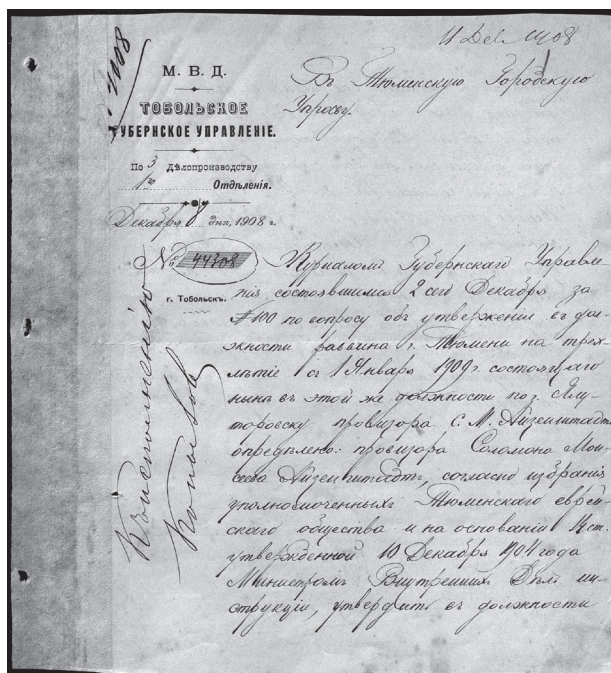 11 Дек 1908
4008
М. В. Д.
ТОБОЛЬСКОЕ
ГУБЕРНСКОЕ УПРАВЛЕНІЕ.
По 3 Дѣлопроизводству
1го Отдѣленія.
Декабря 8 дня, 1908 г.
№ 44308
г. Тобольскъ.
Въ Тюменскую Городскую
Управу.
Журналомъ Губернскаго Управле-
нія состоявшимся 2 сего Декабря за
№ 100 по вопросу объ утвержденіи въ дол-
жности раввина г. Тюмени на трех-
лѣтіе съ 1 Января 1909 г. состоящаго
нынѣ въ этой же должности по г. Ялу-
торовску провизора С. М. Айзенштадтъ
опредѣлено: провизора Соломона Мои-
сеева Айзенштадтъ, согласно избранія
уполномоченныхъ Тюменскаго еврей-
скаго общества и на основаніи 14 ст.
утвержденной 10 Декабря 1904 года
Министромъ Внутреннихъ Дѣлъ ин-
струкціи, утвердить въ должности
Къ исполненію